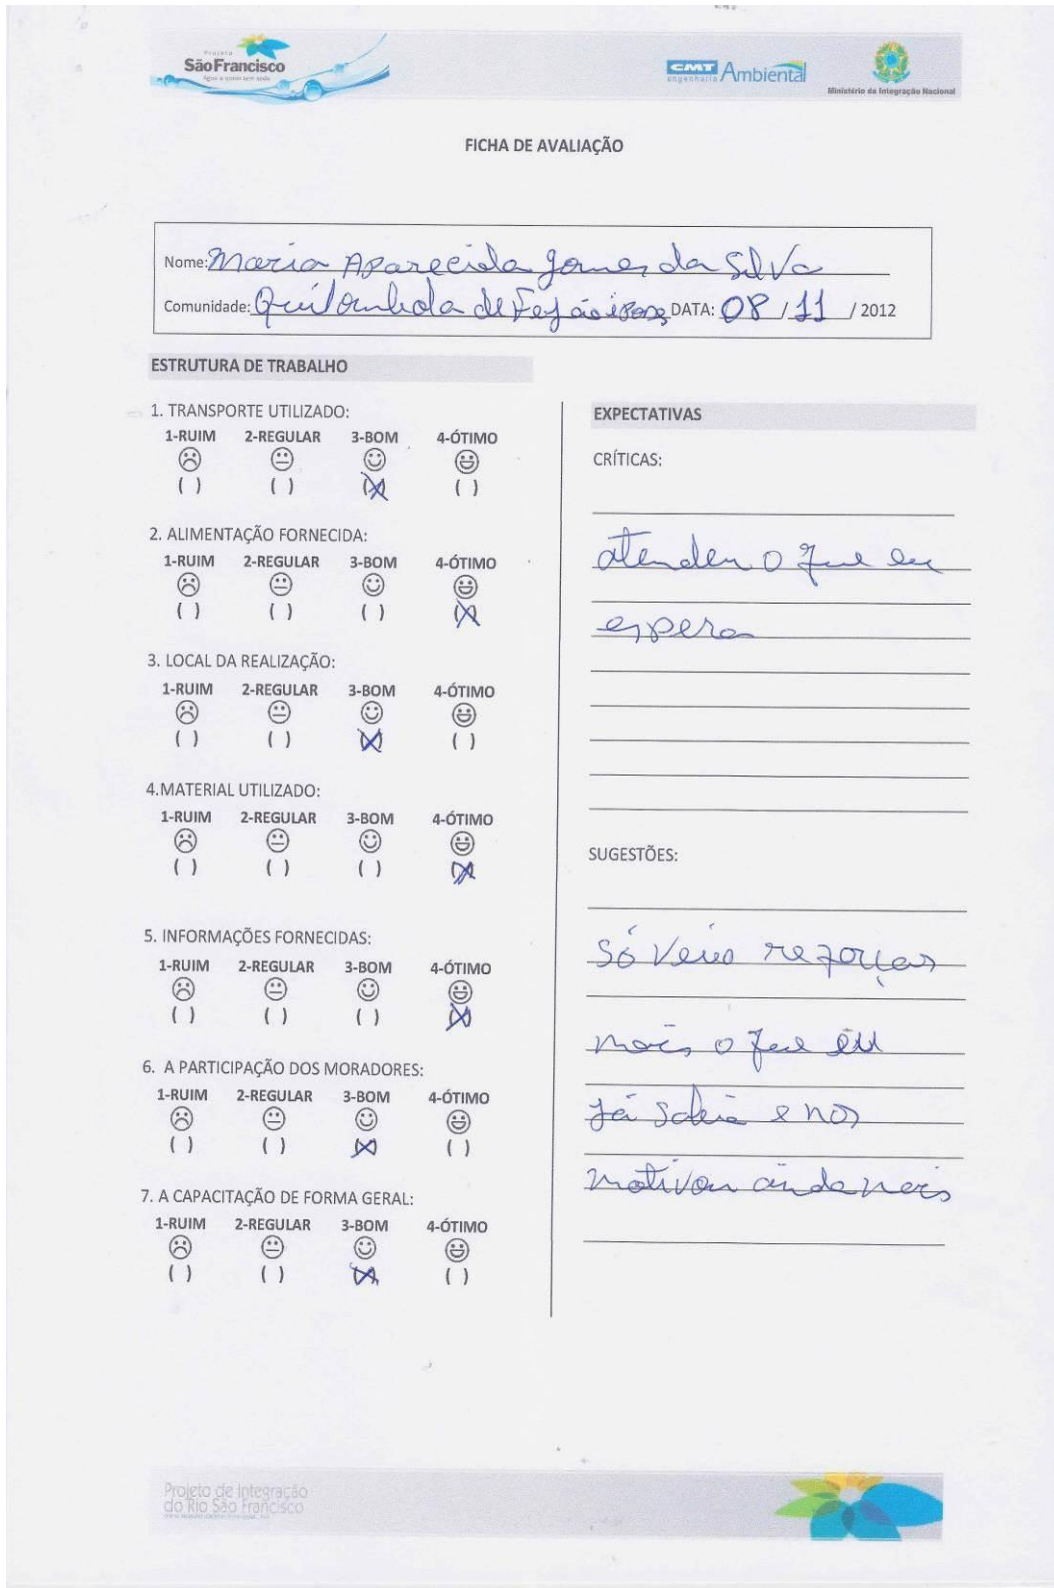 Projeto
São Francisco
Água a quem tem sede
CMT
engenharia Ambiental
Ministério da Integração Nacional
FICHA DE AVALIAÇÃO
Nome: Maria Aparecida Gomes da Silva
Comunidade: Quilombola de Feijão e Posse DATA: 08 / 11 / 2012
ESTRUTURA DE TRABALHO
1. TRANSPORTE UTILIZADO:
1-RUIM 2-REGULAR 3-BOM 4-ÓTIMO
( ) ( ) (X) ( )
2. ALIMENTAÇÃO FORNECIDA:
1-RUIM 2-REGULAR 3-BOM 4-ÓTIMO
( ) ( ) ( ) (X)
3. LOCAL DA REALIZAÇÃO:
1-RUIM 2-REGULAR 3-BOM 4-ÓTIMO
( ) ( ) (X) ( )
4.MATERIAL UTILIZADO:
1-RUIM 2-REGULAR 3-BOM 4-ÓTIMO
( ) ( ) ( ) (X)
5. INFORMAÇÕES FORNECIDAS:
1-RUIM 2-REGULAR 3-BOM 4-ÓTIMO
( ) ( ) ( ) (X)
6. A PARTICIPAÇÃO DOS MORADORES:
1-RUIM 2-REGULAR 3-BOM 4-ÓTIMO
( ) ( ) (X) ( )
7. A CAPACITAÇÃO DE FORMA GERAL:
1-RUIM 2-REGULAR 3-BOM 4-ÓTIMO
( ) ( ) (X) ( )
EXPECTATIVAS
CRÍTICAS:
atendeu o que eu
espera
SUGESTÕES:
só veio reforçar
mais o que eu
já sabia e nos
motivou ainda mais
Projeto de Integração
do Rio São Francisco